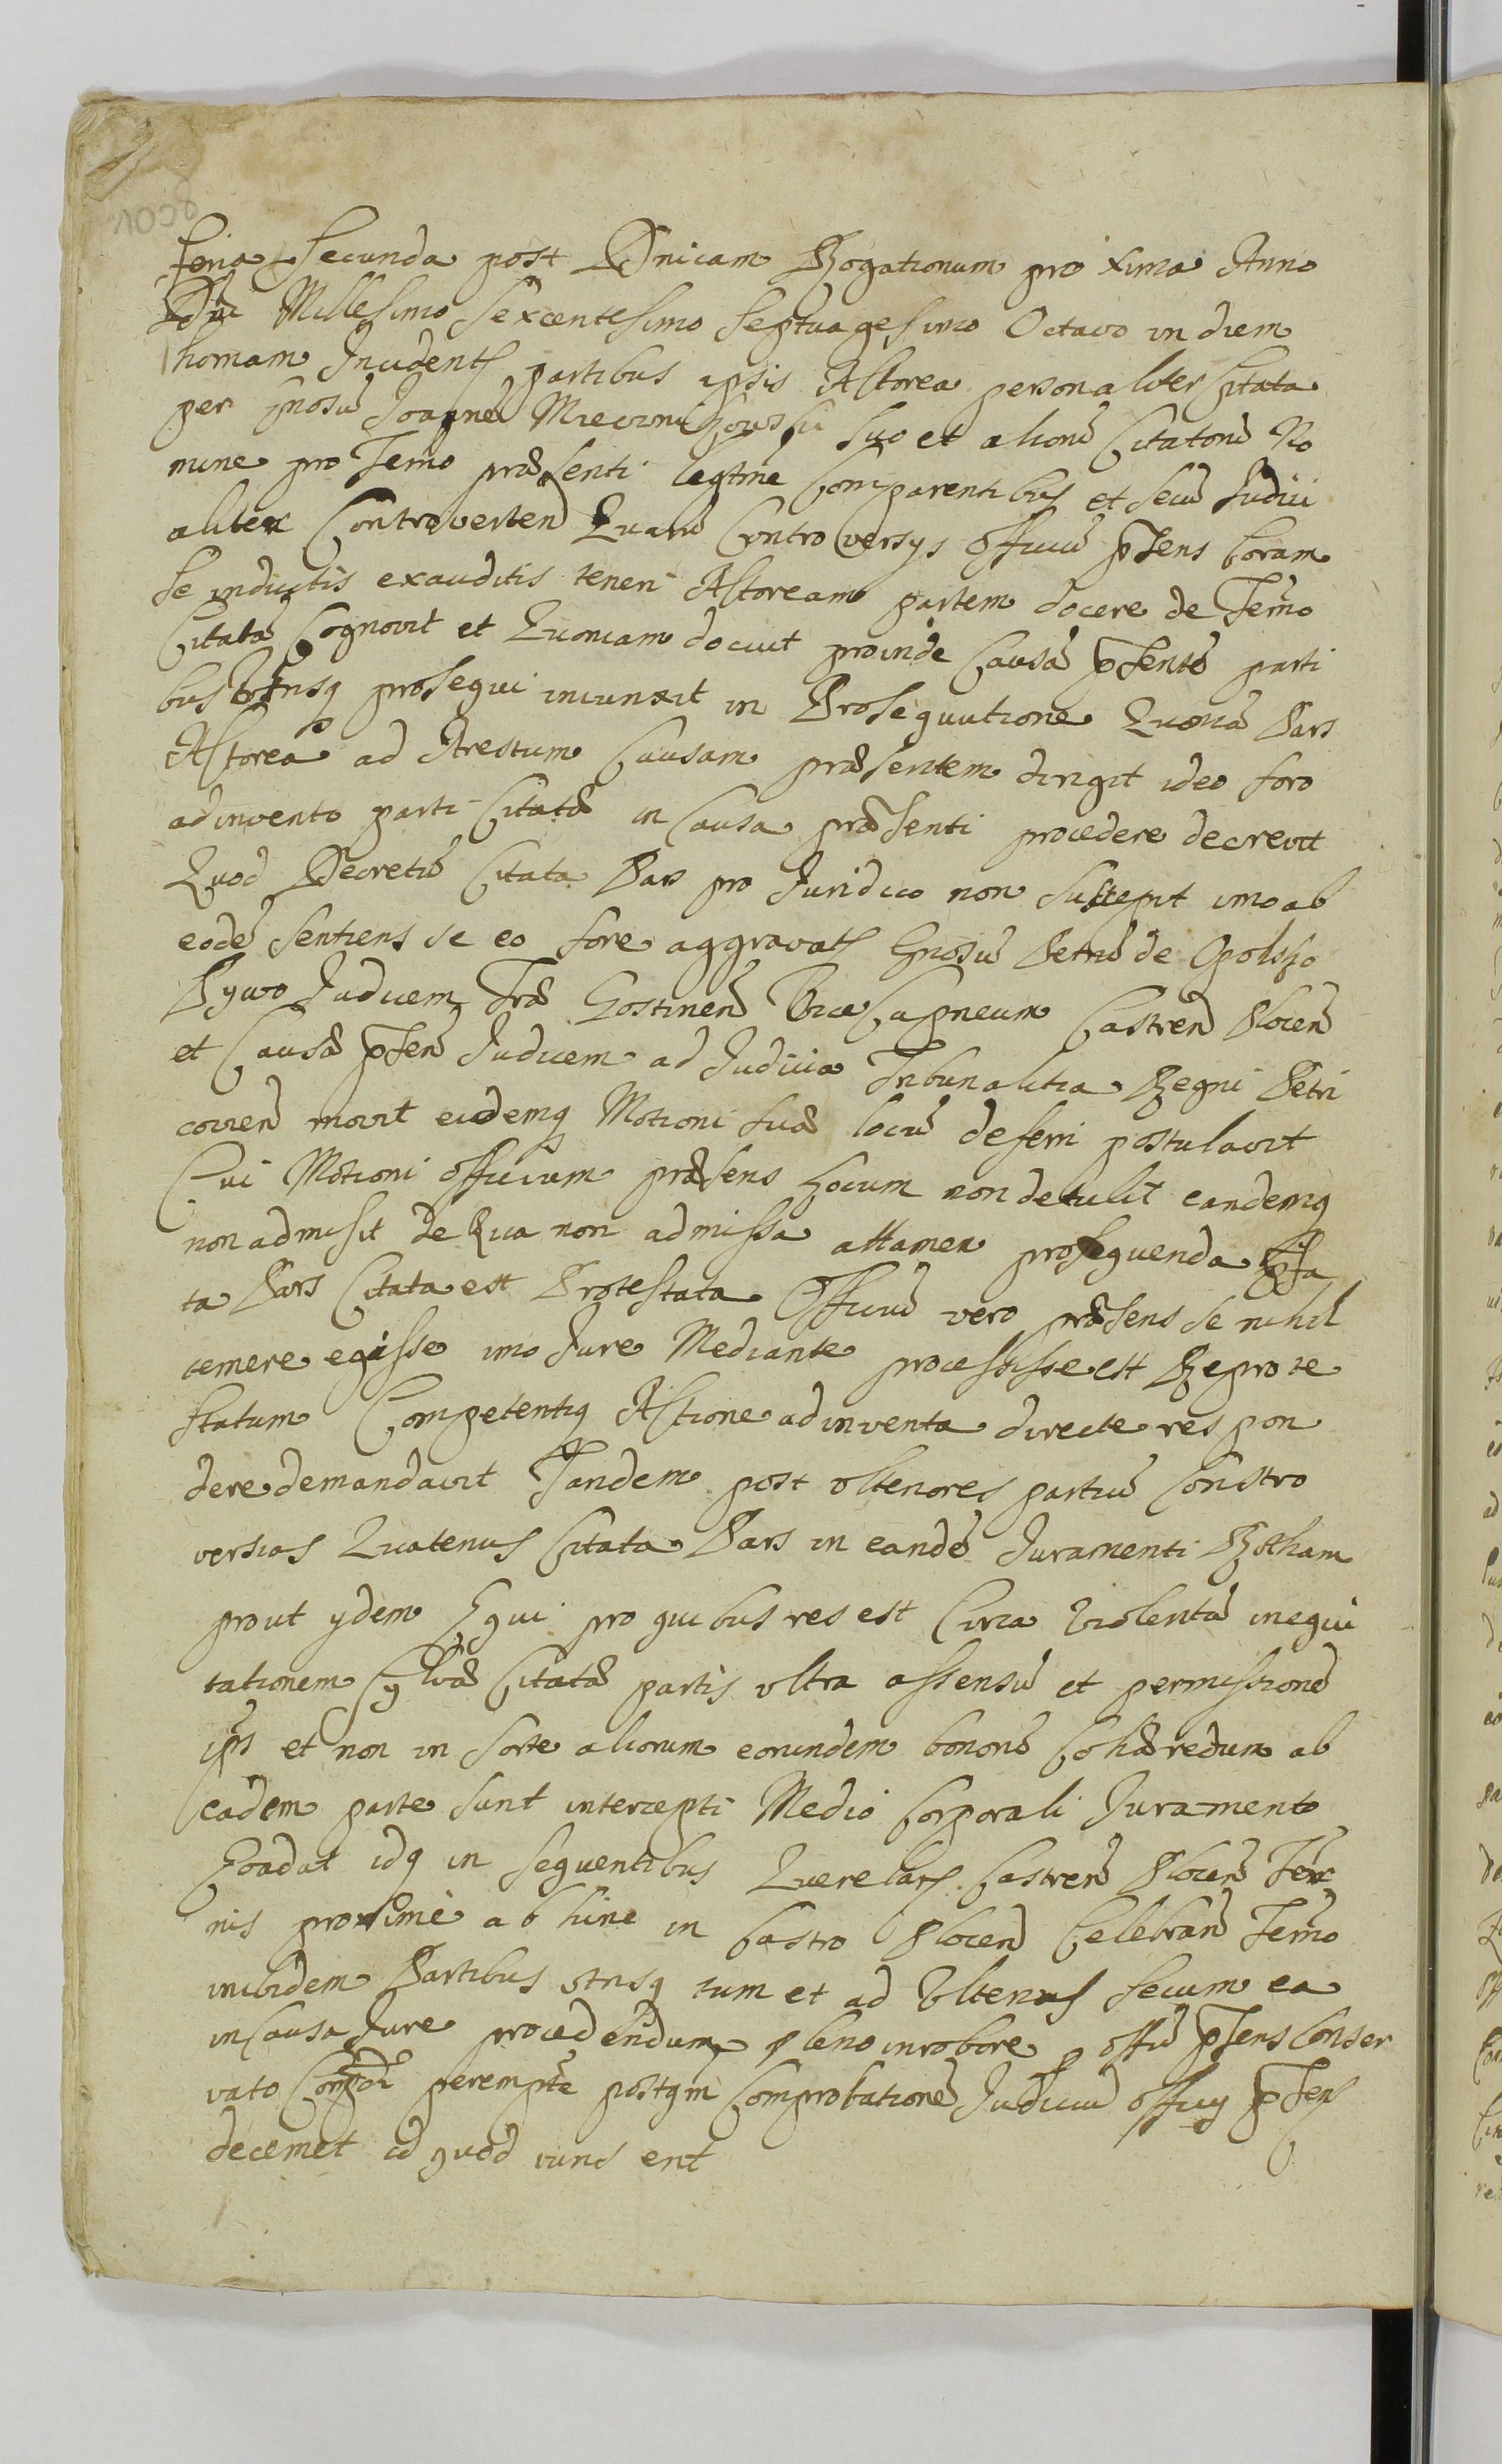 Feria Secunda post Dnicam Rogationum proxima Anno
Dni Millesimo Sexcentesimo Septuagesimo Octavo in diem
Incidenti partibus ipsis Actorea personaliter Citata
per Gnosū Joannē suo et aliorū Citatorū No
mine pro Termo præsenti legtime Comparentibus et secū Judici
aliter Controverten Quarū Controversys Officiū pñsens Coram
se inductis exauditis teneri Actoream partem docere de Termo
Citatæ Cognovit et Quoniam docuit proinde Causā pñsentē parti
bus Utrisq prosequi iniunxit in Prosequutione Quoniā Pars
Actorea ad Arestum Causam præsentem dirigit ideo foro
adinvento parti Citatæ in Causa præsenti procedere decrevit
Quod Decretū Citata Pars pro Juridico non suscepit imo ab
eodē sentiens se eo fore aggravat Gnosū Petrū de Opolsko
Pywo Judicem Træ Gostinen Vice Capneum Castren Plocen
et Causæ pñsen Judicem ad Judicia Tribunalitia Regni Petri
covien movit eidemq Motioni suæ locū deferri postulavit
Cui Motioni officium præsens locum non detulit eandemq
non admisit de Qua non admissa attamen prosequenda
ta Pars Citata est Protestata Officiū vero præsens se nihil
temere egisse imo Jure Mediante processisse est Reprote
statum Competentiq Actione adinventa directe respon
dere demandavit Tandem post ulteriores partiū Contro
versias Quatenus Citata Pars in eandē Juramenti Rotham
prout ydem Equi pro quibus res est Circa Violentā inequi
tationem Sylvæ Citatæ partis ultra assensū et permissionē
ipsis et non in sorte aliorum eorundem bonorū Cohæredum ab
eadem parte sunt intercepti Medio Corporali Juramento
Evadat idq in sequentibus Querelar Castren Plocen Ter
nis proxime ab hinc in Castro Plocen Celebran Termo
inibidem Partibus utrisq tum et ad Ulterius secum ea
in Causa Jure procedendum pleno in robore p offū pñsens Conser
vato peremptē postqm Comprobationē Judiciū officy pñsens
decernet id quod iuris erit